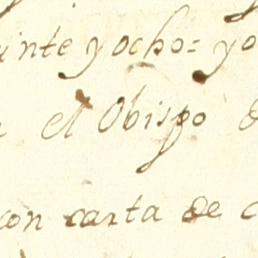 inte y ocho = yo
el Obispo
con carta de